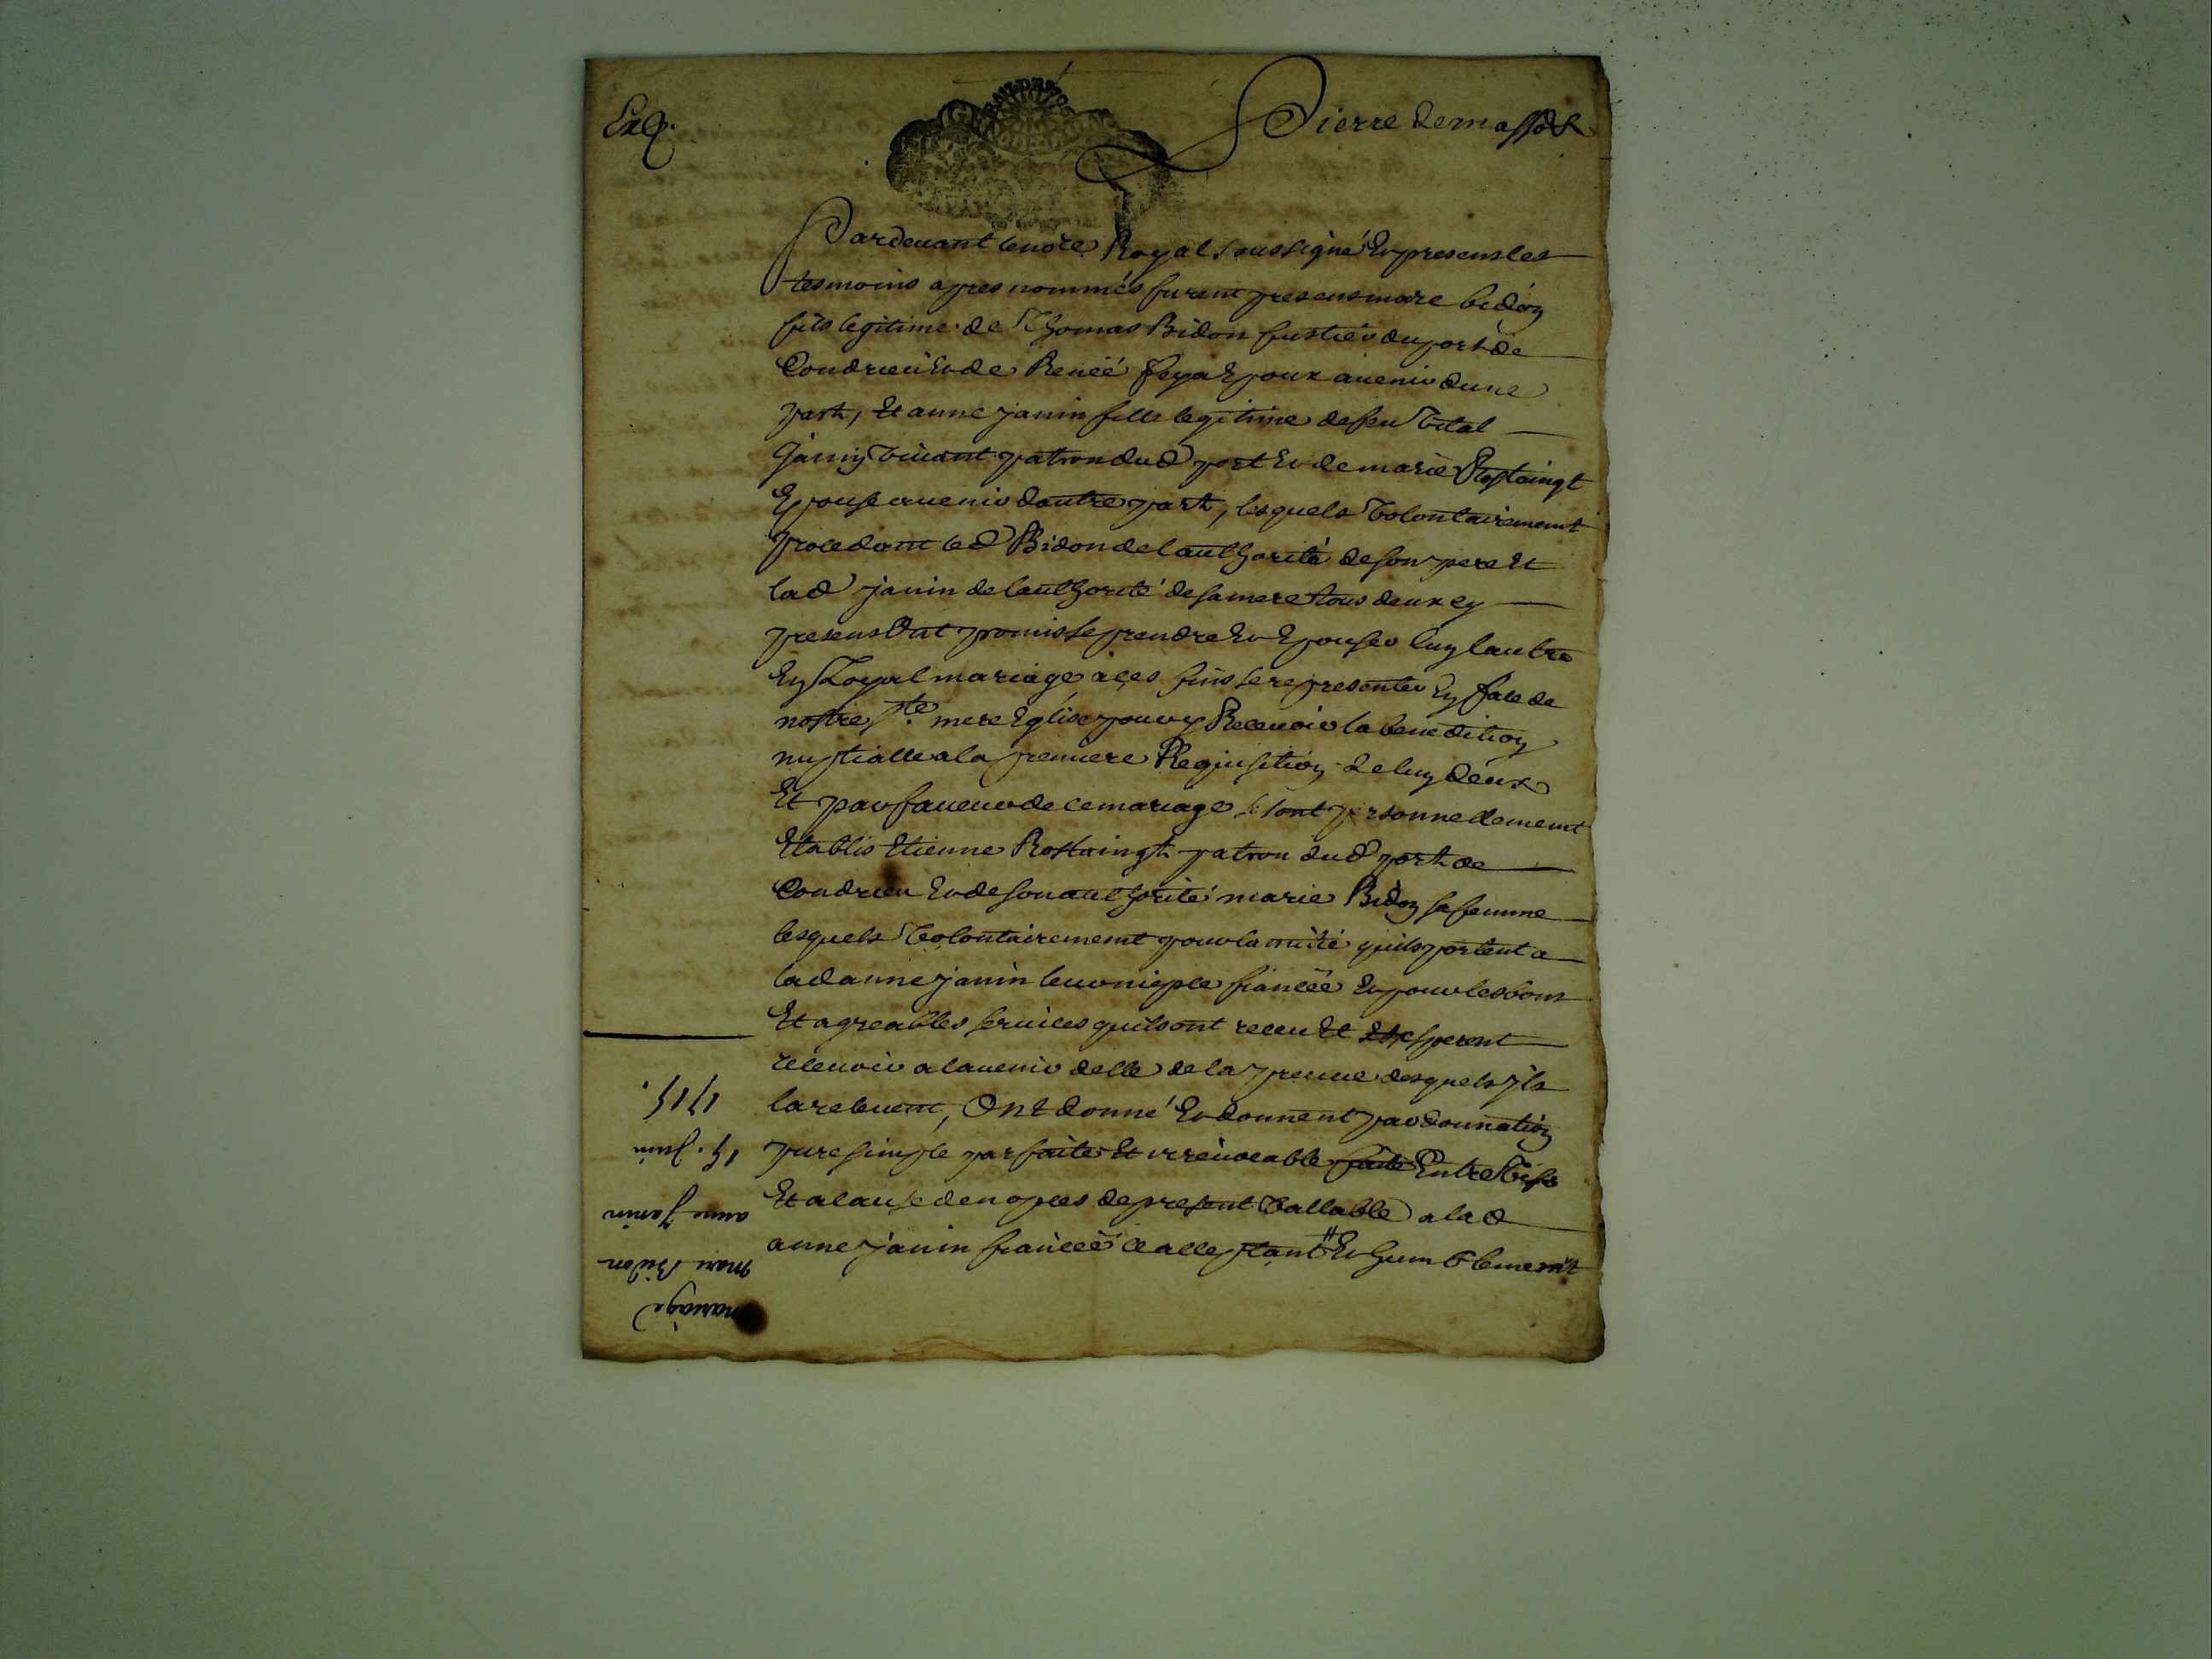 Exp.
Pierre demassot
Pardevant le no.re Royal soussigné Et presens les
tesmoins apres nommés furent presens marc bidon
fils legitime de Thomas Bidon fustier du port de
Condrieu Et de Reneé feya Epoux avenir dune
part, Et anne janin fille legitime de feu Vital
janin vivant patron dud port Et de marie Rostaingt
Epouse avenir dautre part, lesquels Volontairement
procedant led Bidon de lauthorité de son pere Et
lad janin de lauthorité de sa mere tous deux cy
presens Ont promis se prendre Et Epouser luy lautre
En Loyal mariage a ces fins se representer En face de
nostre Ste mere Eglise pour y Recevoir la benedition
nuptialle a la premiere Requisition de luy deux
Et par faveur de ce mariage se sont personnellement
Etablis Etienne Rostaingt patron dud port de
Condrieu Et de son authorité marie Bidon sa femme
lesquels Volontairement pour lamitié quils portent a
lad anne janin leur niepce fiancée Et pour les bons
Et agreables services quils ont receu Et esperent
recevoir a lavenir delle de la preuve desquels ils
la relevent, Ont donné Et donnent par donnation
pure simple parfaite Et irrevocable faite Entre Vifs
Et a cause de nopces de present Vallable a lad
anne janin fianceé ce acceptant # Et humblement
mariage
marc Bidon
anne Janin
15. Juin
1715.